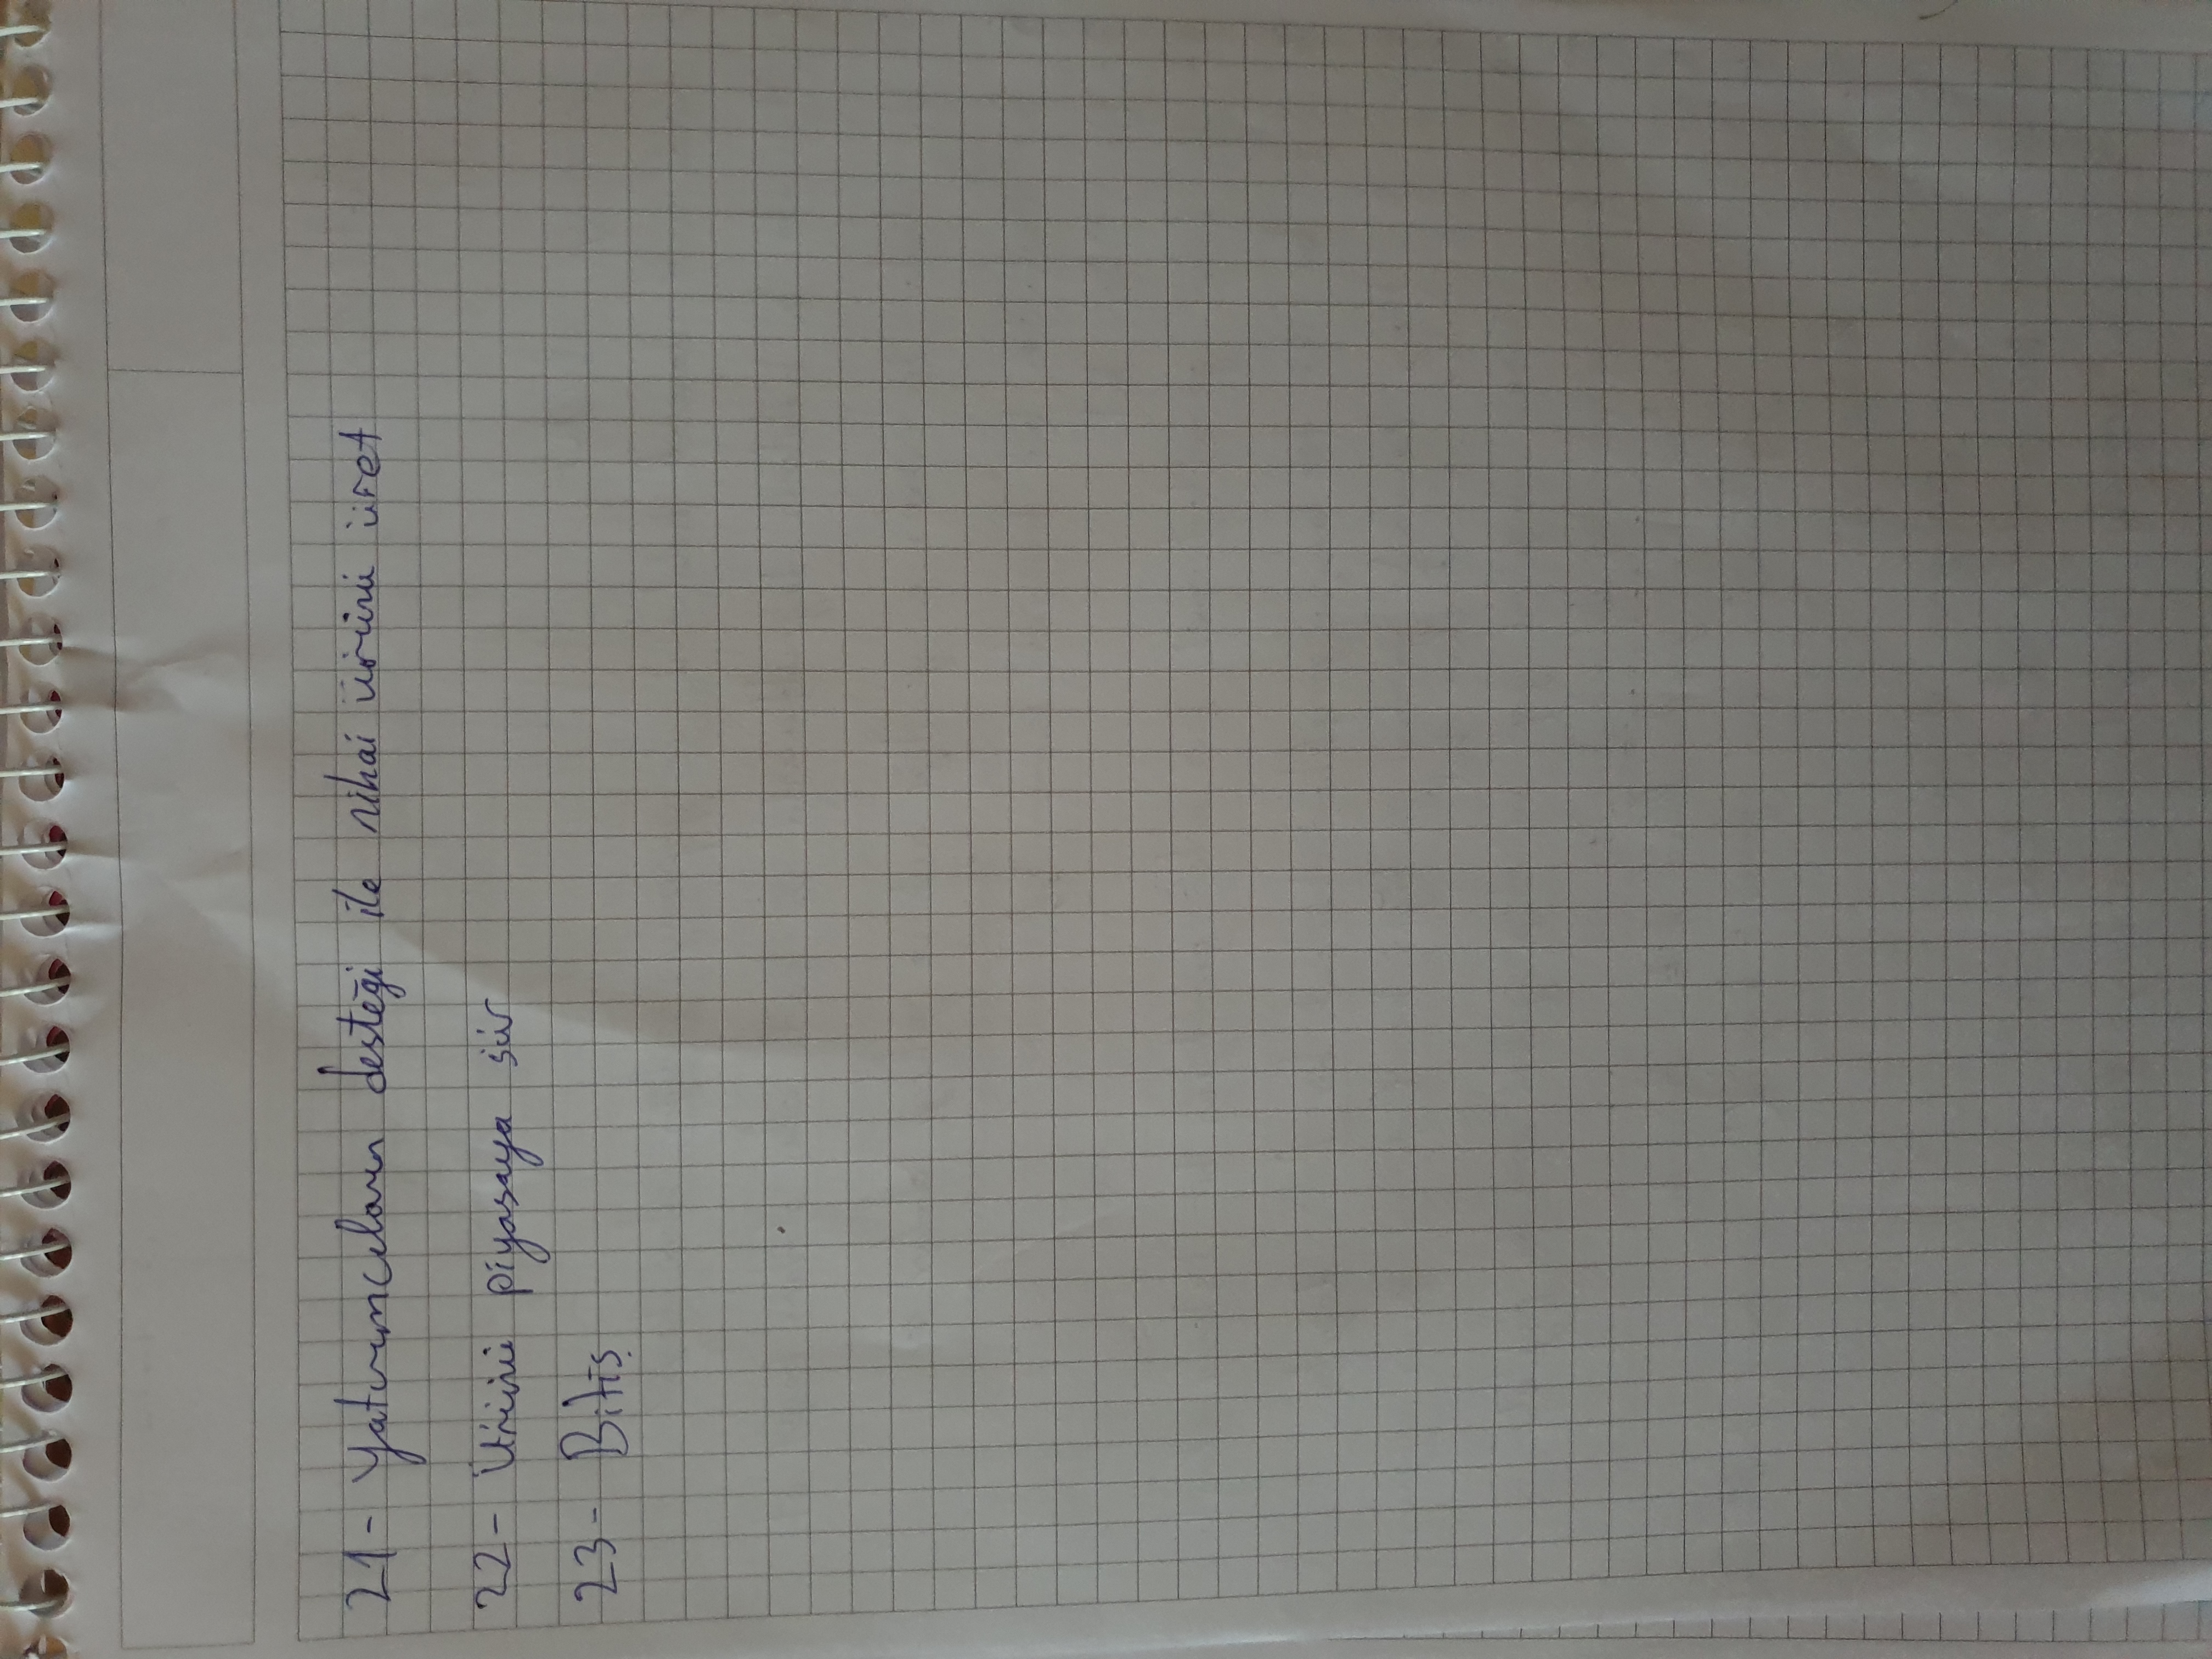 21- Yatırımcıların desteği ile nihai ürünü üret
22- Ürünü piyasaya sür
23- Bitiş